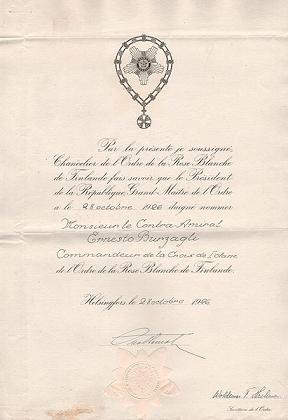 Par la présente je soussigné,
Chancelier de l'Ordre de la Rose Blanche
de Finlande fais savoir que le Président
de la République, Grand-Maître de l'Ordre
a le 28 octobre 1926 daigné nommer
Monsieur le Contre-Amiral
Ernesto Burzagli
Commandeur de la Croix de I classe
de l'Ordre de la Rose Blanche de Finlande.
Helsingfors le 28 octobre 1926